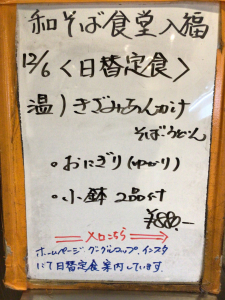 和そば食堂入福
12/6〈日替定食〉
温)きざみあんかけ
そば・うどん
・おにぎり(ゆかり)
・小鉢 2品付
¥880-
入口こちら
ホームページ、グーグルマップ、インスタ
にて日替定食案内しています。